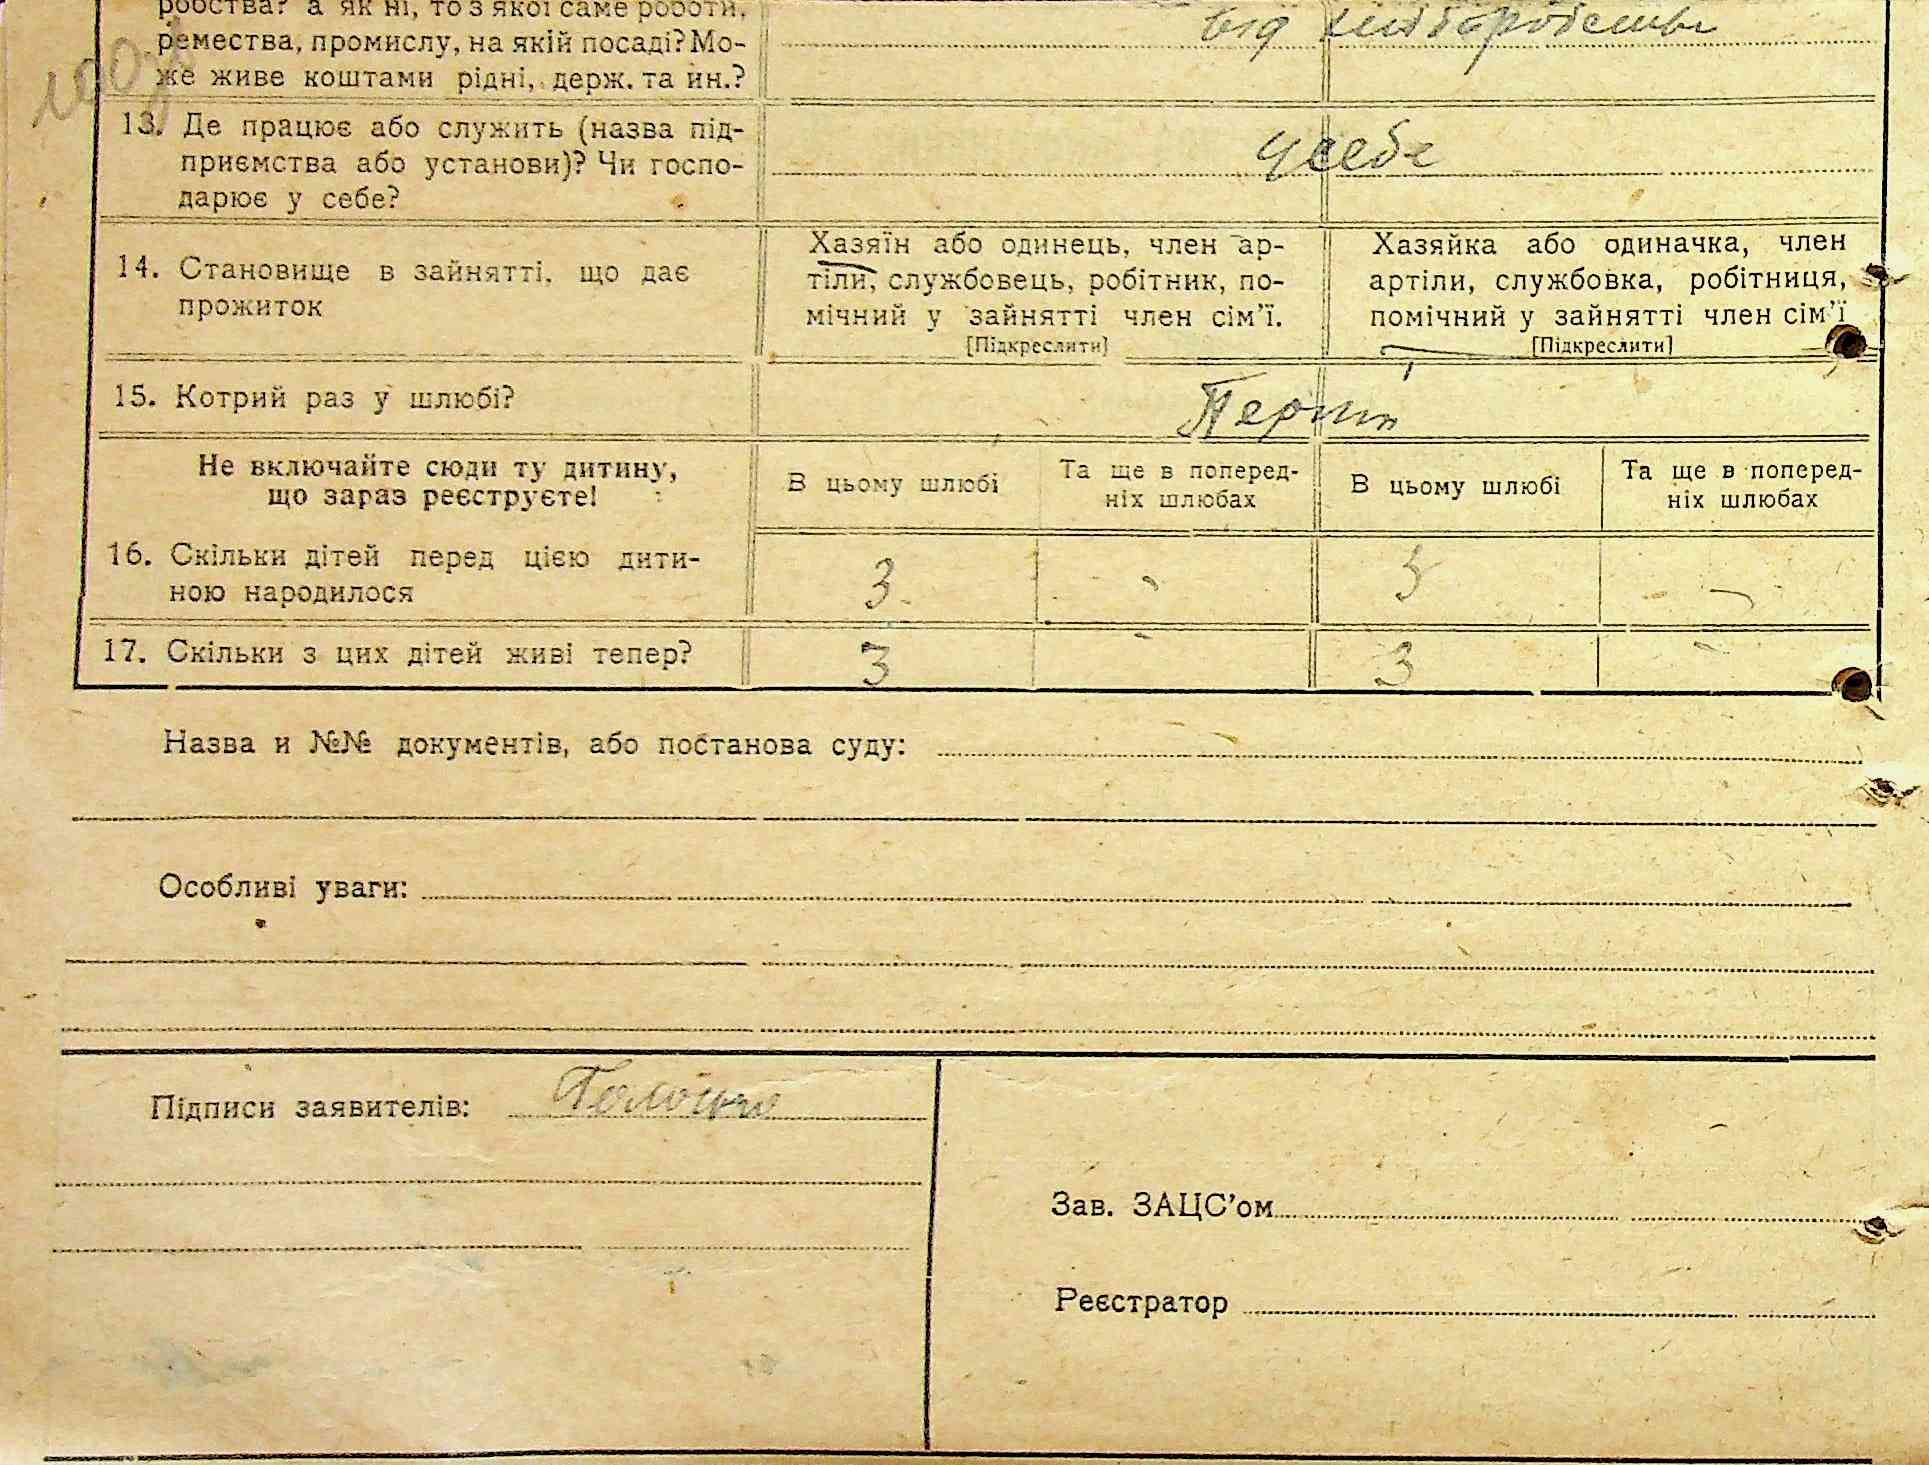 робства? а як ні, то з якої саме роботи,
ремества, промислу, на якій посаді? Мо-
же живе коштами рідні, держ. та ин.?
від хліборобства
13. Де працює або служить (назва під-
приємства або установи)? Чи госпо-
дарює у себе?
у себе
14. Становище в зайнятті, що дає
прожиток
Хазяїн або одинець, член ар-
тіли, службовець, робітник, по-
мічний у зайнятті член сім'ї.
[Підкреслити]
Хазяйка або одиначка, член
артіли, службовка, робітниця,
помічний у зайнятті член сім'ї
[Підкреслити]
15. Котрий раз у шлюбі?
Перший
Не включайте сюди ту дитину,
що зараз реєструєте!
В цьому шлюбі
Та ще в поперед-
ніх шлюбах
В цьому шлюбі
Та ще в поперед-
ніх шлюбах
16. Скільки дітей перед цією дити-
ною народилося
3 - 3 -
17. Скільки з цих дітей живі тепер?
3 - 3 -
Назва и №№ документів, або постанова суду:
Особливі уваги:
Підписи заявителів:
Зав. ЗАЦС'ом
Реєстратор